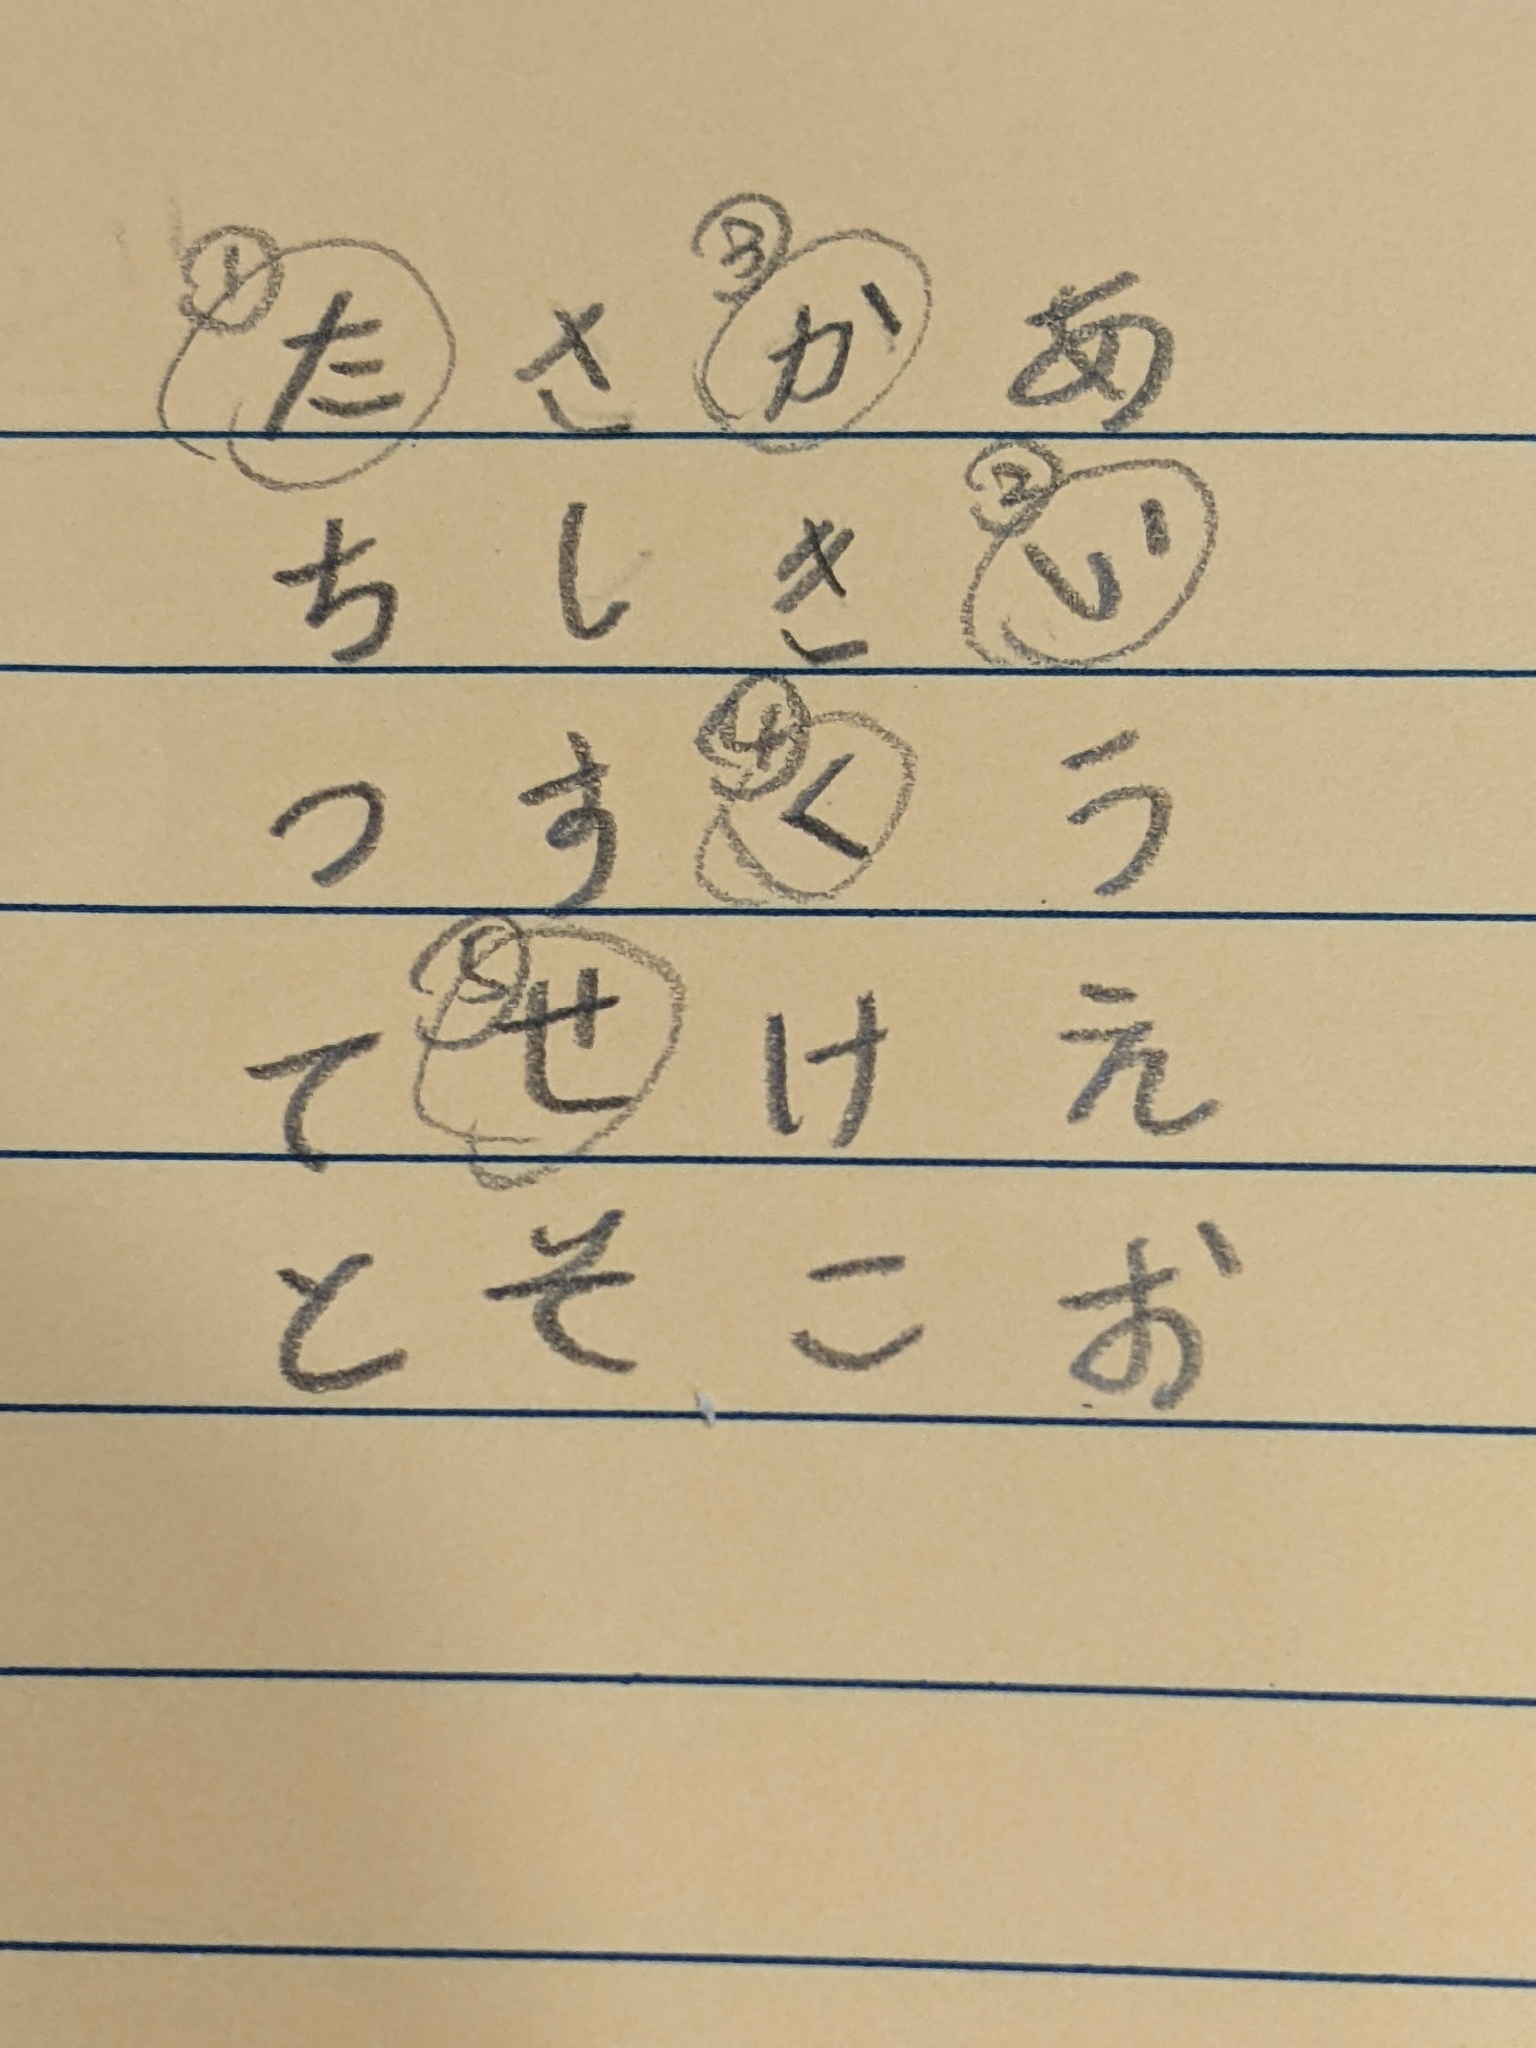 ①た さ ③か あ
ち し き ②い
つ す ④く う
て ⑤せ け え
と そ こ お